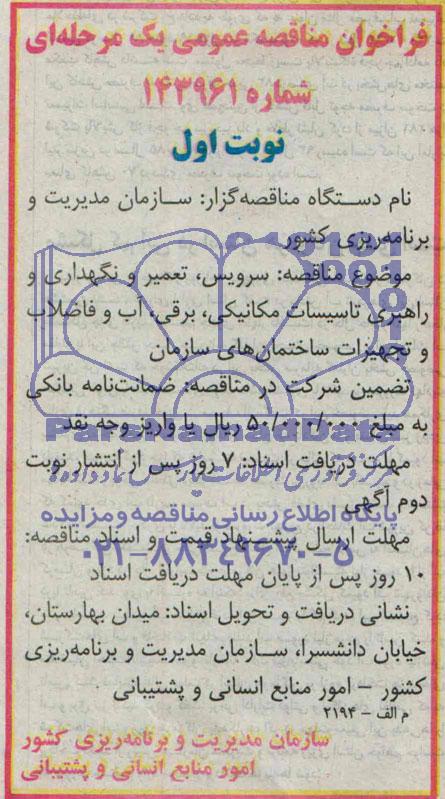 فراخوان مناقصه عمومی یک مرحله‌ای
شماره ۱۴۳۹۶۱
نوبت اول
نام دستگاه مناقصه‌گزار: سازمان مدیریت و
برنامه‌ریزی کشور
موضوع مناقصه: سرویس، تعمیر و نگهداری و
راهبری تاسیسات مکانیکی، برقی، آب و فاضلاب
و تجهیزات ساختمان‌های سازمان
تضمین شرکت در مناقصه: ضمانت‌نامه بانکی
به مبلغ ۵۰/۰۰۰/۰۰۰ ریال یا واریز وجه نقد
ParsNamadData
مهلت دریافت اسناد: ۷ روز پس از انتشار نوبت
دوم آگهی
پایگاه اطلاع رسانی مناقصه و مزایده
مهلت ارسال پیشنهاد قیمت و اسناد مناقصه:
۰۲۱-۸۸۳۴۹۶۷۰-۵
۱۰ روز پس از پایان مهلت دریافت اسناد
نشانی دریافت و تحویل اسناد: میدان بهارستان،
خیابان دانشسرا، سازمان مدیریت و برنامه‌ریزی
کشور – امور منابع انسانی و پشتیبانی
م الف – ۲۱۹۴
سازمان مدیریت و برنامه‌ریزی کشور
امور منابع انسانی و پشتیبانی